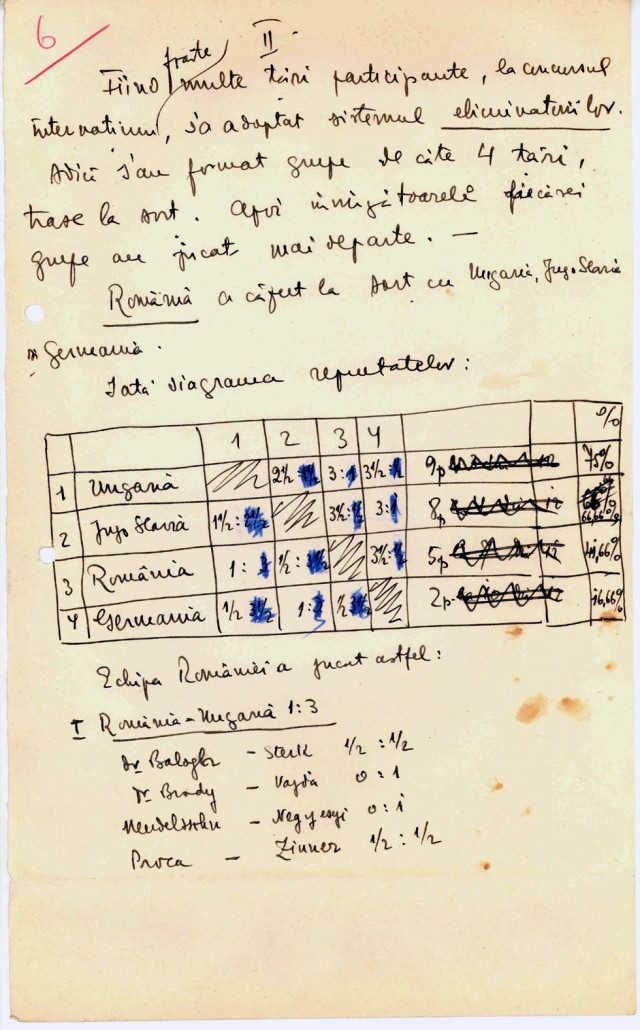 6
II
foarte
Fiind multe țări participante, la concursul
internațiunii, s'a adoptat sistemul eliminatoriilor.
Adică s'au format grupe de câte 4 țări,
trase la sort. Apoi învingătoarele fiecărei
grupe au jucat mai departe. —
România a căzut la sort cu Ungaria, Jugo Slavia
Germania.
Iată diagrama rezultatelor:
1 2 3 4 %
1 Ungaria 2½ : 3 : 1 3½ : ½ 9p 75%
2 Jugo Slavia 1½ : 3½ : ½ 3 : 1 8p 66,66%
3 România 1 : 3 ½ : 3½ : ½ 5p 41,66%
4 Germania ½ 3½ 1 : 3 ½ 3½ 2p 16,66%
Echipa României a jucat astfel:
I România - Ungaria 1:3
Dr Balogh - Sterk ½ : ½
Dr. Brody - Vajda 0 : 1
Mendelssohn - Negyesyi 0 : 1
Proca - Zinner ½ : ½